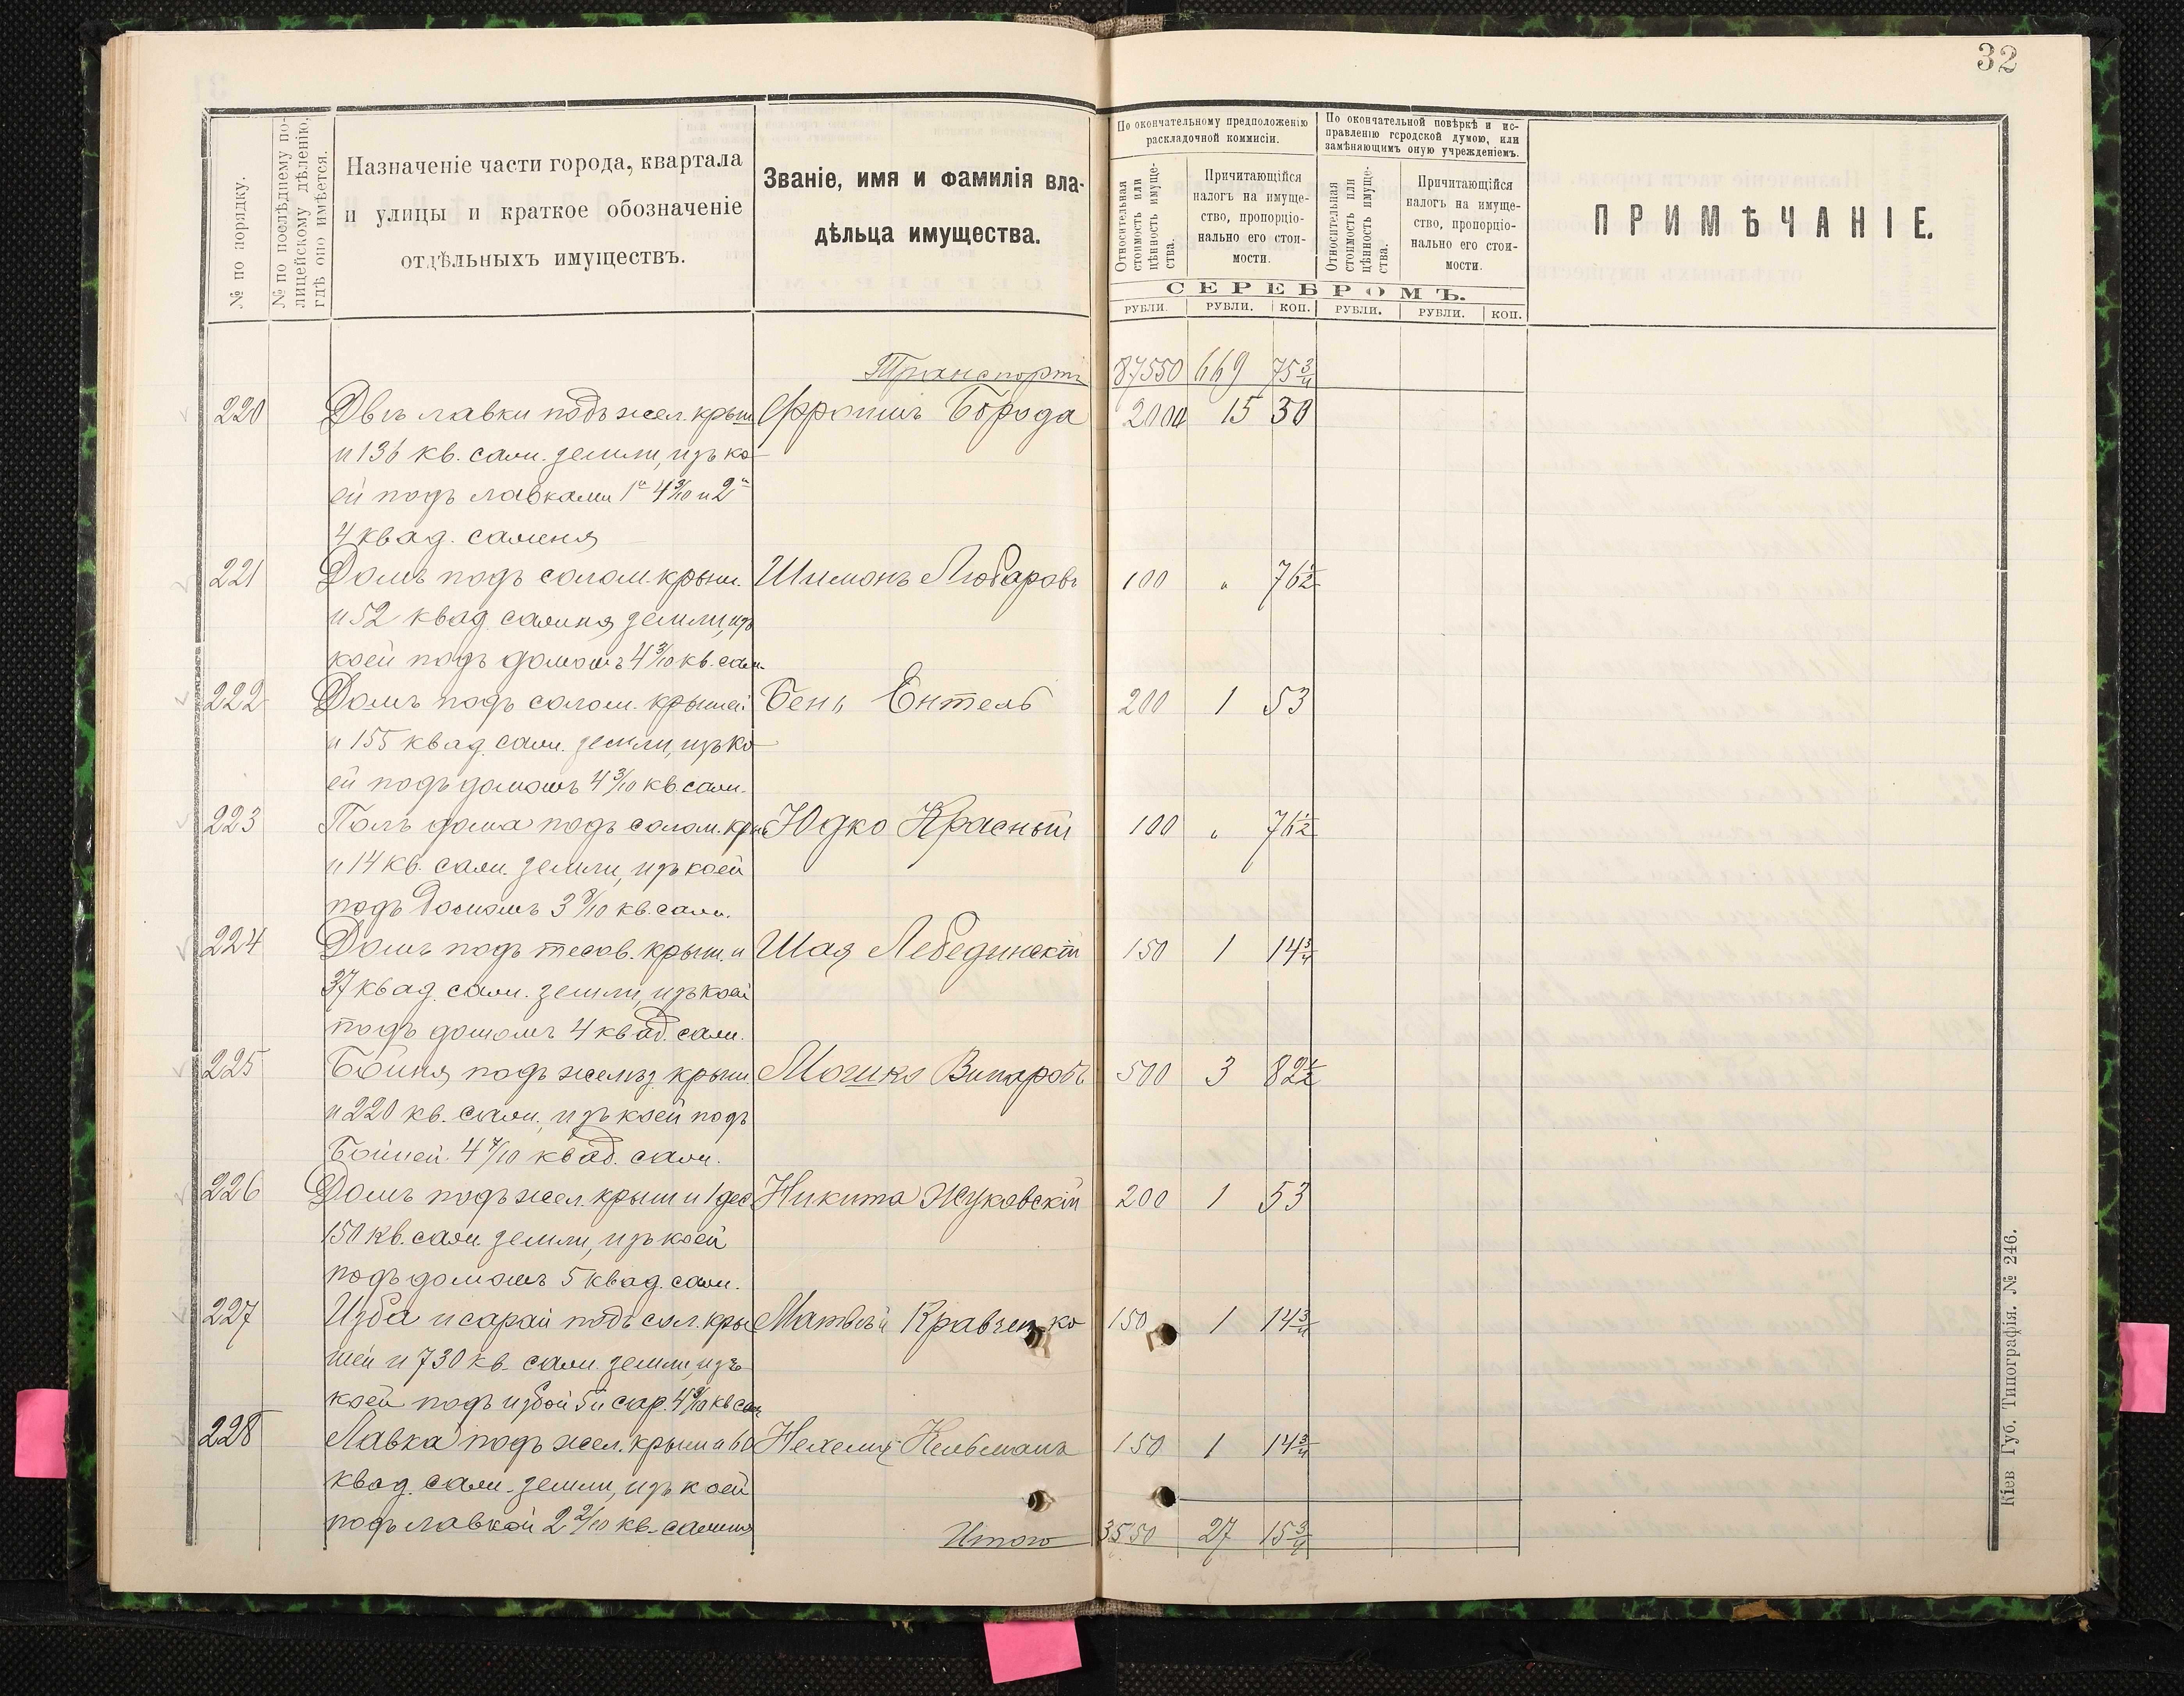 32
№ по порядку.
№ по послѣднему по-
лицейскому дѣленію,
гдѣ оно имѣется.
Назначеніе части города, квартала
и улицы и краткое обозначеніе
отдѣльныхъ имуществъ.
Званіе, имя и фамилія вла-
дѣльца имущества.
По окончательному предположенію
раскладочной коммисіи.
Относительная
стоимость или
цѣнность имуще-
ства.
Причитающійся
налогъ на имуще-
ство, пропорціо-
нально его стои-
мости.
По окончательной повѣркѣ и ис-
правленію городской думою, или
замѣняющимъ оную учрежденіемъ.
Относительная
стоимость или
цѣнность имуще-
ства.
Причитающійся
налогъ на имуще-
ство, пропорціо-
нально его стои-
мости.
ПРИМѢЧАНІЕ.
СЕРЕБРОМЪ.
РУБЛИ. РУБЛИ. КОП. РУБЛИ. РУБЛИ. КОП.
Транспортъ 87550 669 75 3/4
220 Двѣ лавки подъ жел. крыш Фроимъ Борода 2000 15 30
и 136 кв. саж. земли, изъ ко-
ей подъ лавками 1я 4 3/10 и 2я
4 квад. саженя
221 Домъ подъ солом. крыш. Шимонъ Любаровъ 100 " 76 1/2
и 52 квад. саженя земли, изъ
коей подъ домомъ 4 3/10 кв. саж.
222 Домъ подъ солом. крышей Бень Ентель 200 1 53
и 155 квад. саж. земли, изъ ко-
ей подъ домомъ 4 3/10 кв. саж.
223 Полъ дома подъ солом. кры Юдко Красный 100 " 76 1/2
и 14 кв. саж. земли, изъ коей
подъ домомъ 3 8/10 кв. саж.
224 Домъ подъ тесов. крыш. и Шая Лебединскій 150 1 14 3/4
37 квад. саж. земли, изъ коей
подъ домомъ 4 квад. саж.
225 Бойня подъ желѣз. крыш Мошко Винаровъ 500 3 82 1/2
и 220 кв. саж., изъ коей подъ
бойней 4 7/10 квад. саж.
226 Домъ подъ жел. крыш и 1 дес Никита Жуковскій 200 1 53
150 кв. саж. земли, изъ коей
подъ домомъ 5 квад. саж.
227 Изба и сарай подъ сол. кры Матвѣй Кравченко 150 1 14 3/4
шей и 730 кв. саж. земли, изъ
коей подъ избой 5 и сар. 4 9/10 кв саж
228 Лавка подъ жел. крыш и 60 Нехемія Кельманъ 150 1 14 3/4
квад. саж. земли, изъ коей
подъ лавкой 2 2/10 кв. саженя
Итого 3550 27 15 3/4
Кіев Губ. Типографія. № 246.